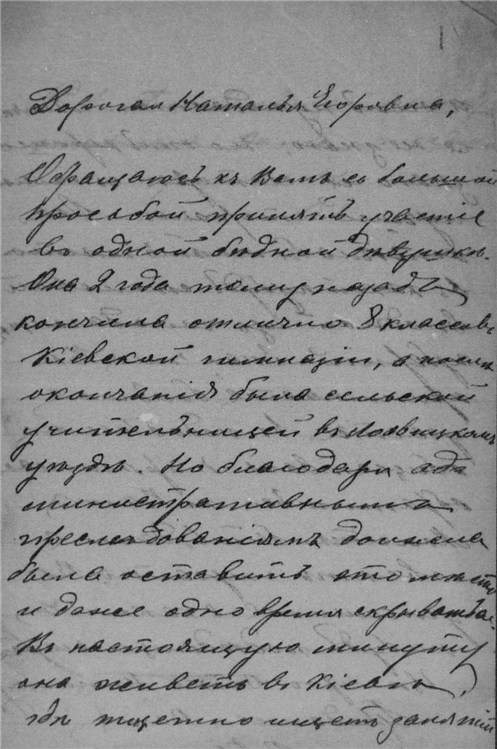 Дорогая Наталья Егоровна,
Обращаюсь къ Вамъ съ большой
просьбой принять участіе
въ одной бѣдной дѣвушкѣ.
Она 2 года тому назадъ
кончила отлично 8 классовъ
Кіевской гимназіи, а послѣ
окончанія была сельской
учительницей въ Лохвицкомъ
уѣздѣ. Но благодаря ад-
министративнымъ
преслѣдованіямъ должна
была оставить это мѣсто
и даже одно время скрываться.
Въ настоящую минуту
она живетъ въ Кіевѣ,
гдѣ тщетно ищетъ занятій